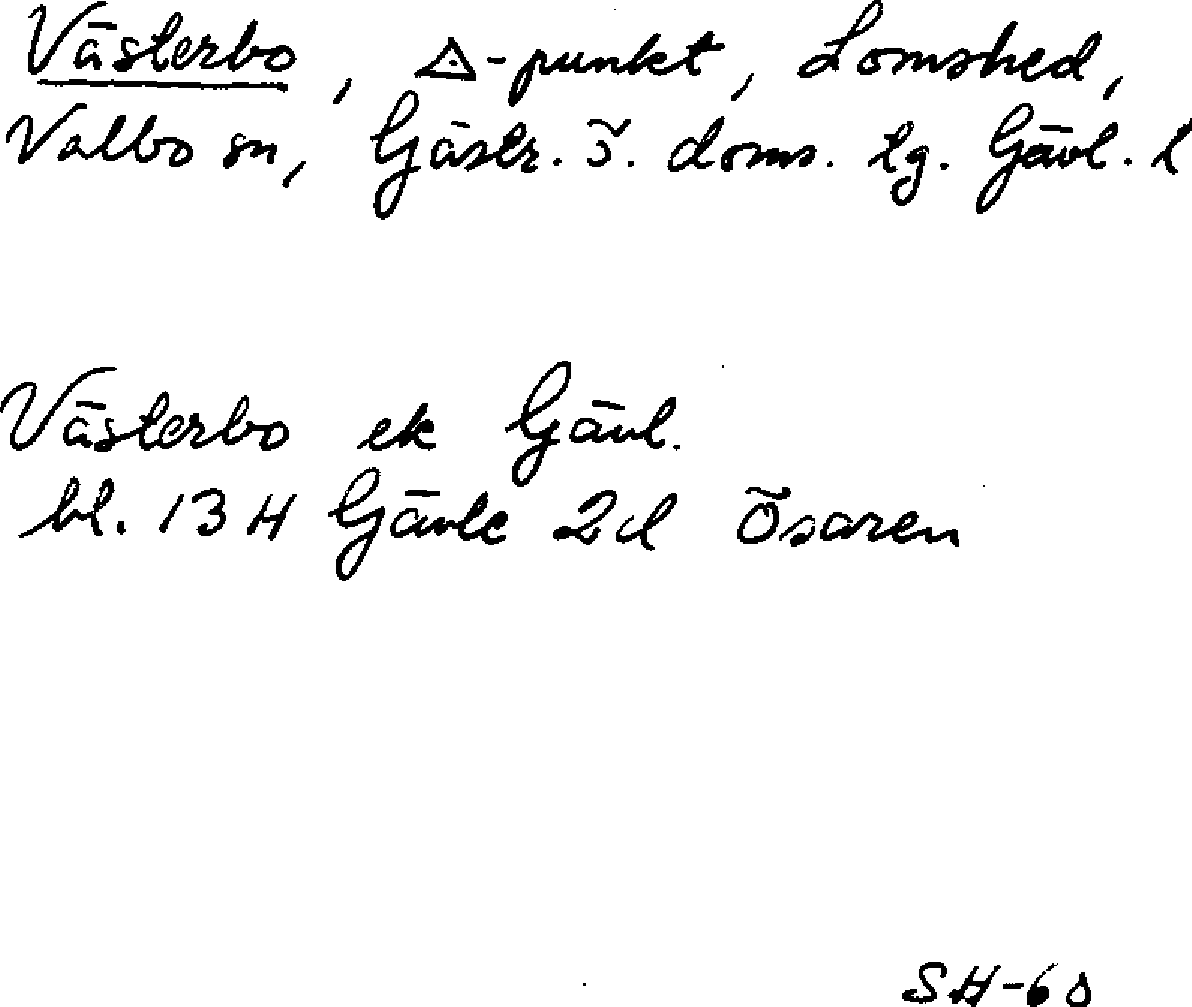 Västerbo, △-punkt, Lomshed,
Valbo sn, Gästr. ö. doms. tg. Gävl. l
Västerbo ek Gävl.
bl. 13 H Gävle 2d Ösaren
SH-60